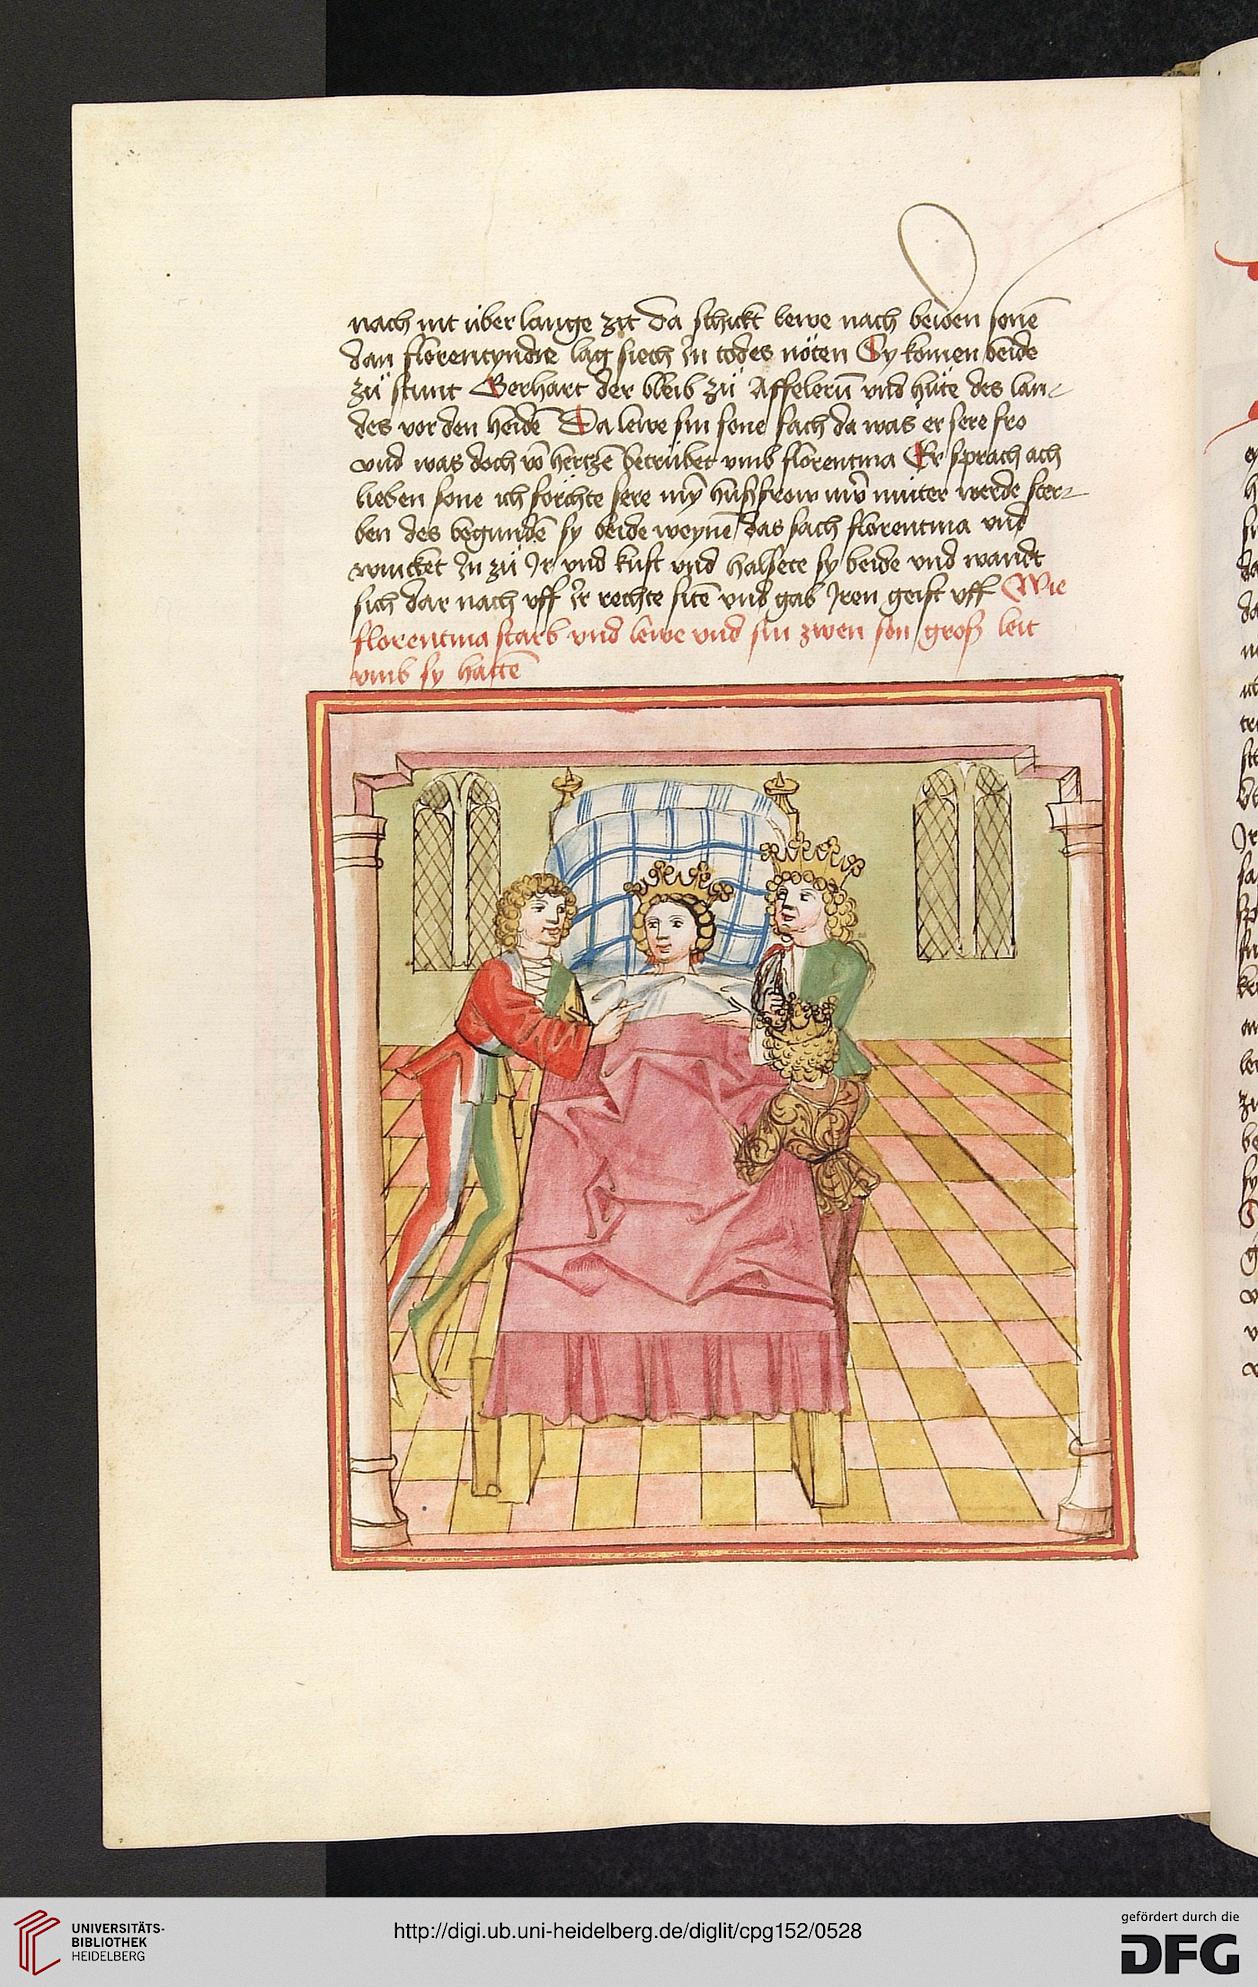 nach nit über lange zit Da schickt lewe nach beiden sonē
dan florentyndie lag siech In todes nöten Sy komen beide
zü stunt Gerhart der bleib zü Affelerū vnd hüte des lan-
des vor den heidē Da lewe sin sone sach da was er sere fro
vnd was doch vō hertzē betrübet vmb florentina Er sprach ach
lieben sone ich förchte sere mȳ hußfrow uw̄ muter werde ster-
ben des begundē sy beide weynē das sach florentina vnd
wincket In zü Ir vnd kust vnd halsete sy beide vnd wandt
sich dar nach vff Ir rechte sitē vnd gab Iren geist vff Wie
florentina starb vnd lewe vnd sin zwen son groß leit
vmb sy hattē
UNIVERSITÄTS-
BIBLIOTHEK
HEIDELBERG
http://digi.ub.uni-heidelberg.de/diglit/cpg152/0528
gefördert durch die
DFG